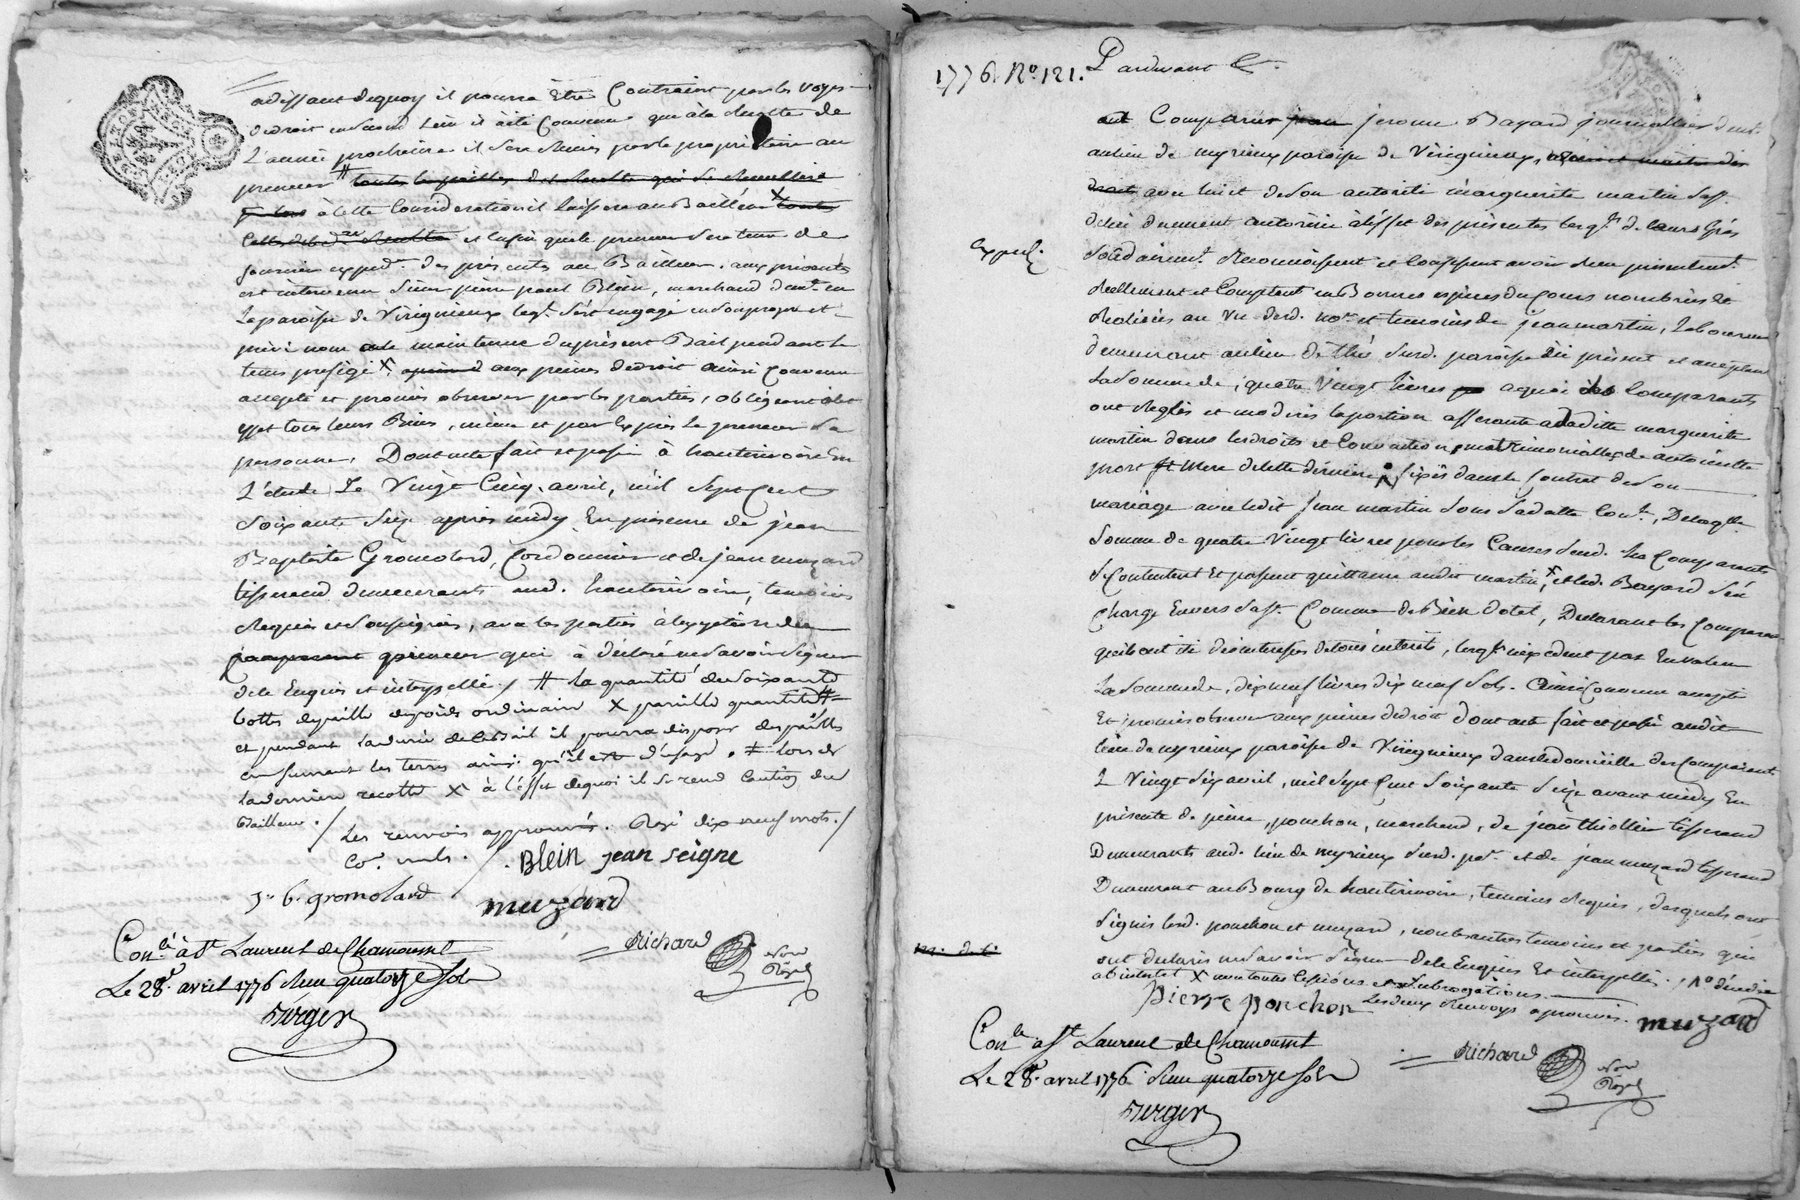 adissant dequoy il pourra être Contraint par les voyes
de droit
L'année prochaine il sera permis par le propriétaire au
preneur #
à cette Considération il laissera au Bailleur X
et enfin que le preneur sera tenu de
fournir expedon. des présentes au Bailleur. aux présentes
est intervenu Sieur pierre paul Blein, marchand demt. en
La paroisse de Virignieux leql. s'est engagé en son propre et
privé nom maintenue du présent Bail pendant le
tems préfigé X. aux peines de droit ainsi Convenu
accepté et promis observer par les parties, obligeant à cet
effet tous leurs Biens, même et par Exprès Le preneur Sa
personne, Dont acte fait et passé à hauterivoire En
L'étude Le Vingt Cinq. avril, mil Sept Cent
Soixante Seize après midy En présence de jean
Baptiste Gromolard, Cordonnier et de jean muzard
tisserand demeurants aud. hauterivoire, temoins
Requis et Soussignés, avec les parties à l'exception du
preneur qui à déclaré ne Savoir Signer
de ce Enquis et interpellé./ # La quantité de Soixante
bottes de paille du poids ordinaire X pareille quantité #
et pendant la durée de ce Bail il pourra disposer des pailles
en fumant les terres ainsi qu'il est d'usage. # lors de
la derniere recolte X à l'effet de quoi il se rend Caution du
Bailleur./
Les renvois approuvés. Rayé dix neuf mots./
Co. nuls.
Blein jean Seigne
J. b. gromolard
muzard
Conlé. à St. Laurent de Chamousset
Richard
Le 28e. avril 1776 Reçu quatorze Sols
Nore
Royal
Verger
1776. No. 121.
Pardevant &.
Comparus jerome Bayard journallier demt.
au lieu de meyrieux paroisse de Virignieux,
avec lui et de Son autorité marguerite martin Saf.
de lui duement autorisée à l'effet des présentes lesqls. de leurs grés
Exped.
Solidairemt. Reconnoissent et Confessent avoir Reçu présentemt.
Réellement et Comptant en Bonnes espèces du Cours nombrées et
Réalisées au Vu desd. nore. et temoins de jean martin, Laboureur
demeurant au lieu de Thé Surd. paroisse ici présent et acceptant
La Somme de, quatre Vingt livres à quoi les Comparants
ont Reglés et modérés la portion afferante à ladite marguerite
martin dans les droits et Conventions matrimonialles de antoinette
mère de cette dernière fixés dans le Contrat de Son
mariage avec ledit jean martin Sous Sa datte Conl., De laqlle
Somme de quatre Vingt livres pour les Causes Susd. les Comparants
Se Contentent et passent quittance audit martin, X et led. Bayard S'en
Charge Envers Saf. Comme de Bien dotal, Déclarant les Comparants
qu'ils ont été désintéressés de tous intérêts, lesqls n'excedent pas En valeur
La Somme de, dix neuf livres dix neuf Sols. Ainsi Convenu accepté
Et promis observer aux peines de droit dont acte fait et passé audit
lieu de meyrieux paroisse de Virignieux dans le domicille des Comparants
L Vingt Six avril, mil Sept Cent Soixante Seize avant midy En
présence de pierre, ponchon, marchand, de jean thiollier tisserand
Demeurants aud. lieu de meyrieux Surd. par. et de jean muzard tisserand
Demeurant au Bourg de hauterivoire, temoins Requis, desquels ont
Signés lesd. ponchon et muzard, non les autres temoins et parties qui
ont déclarés ne Savoir Signer de ce Enquis Et interpellés./
ab intestat X avec toutes Cessions et Subrogations.
Pierre ponchon
Les deux Renvoys aprouvés.
muzard
Conlé. à St. Laurent de Chamousset
Richard
Le 28e. avril 1776 Reçu quatorze Sols
Nore
Royal
Verger